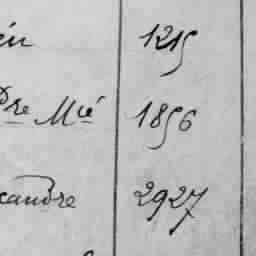 en 1215
Pre Mié 1856
xandre 2927